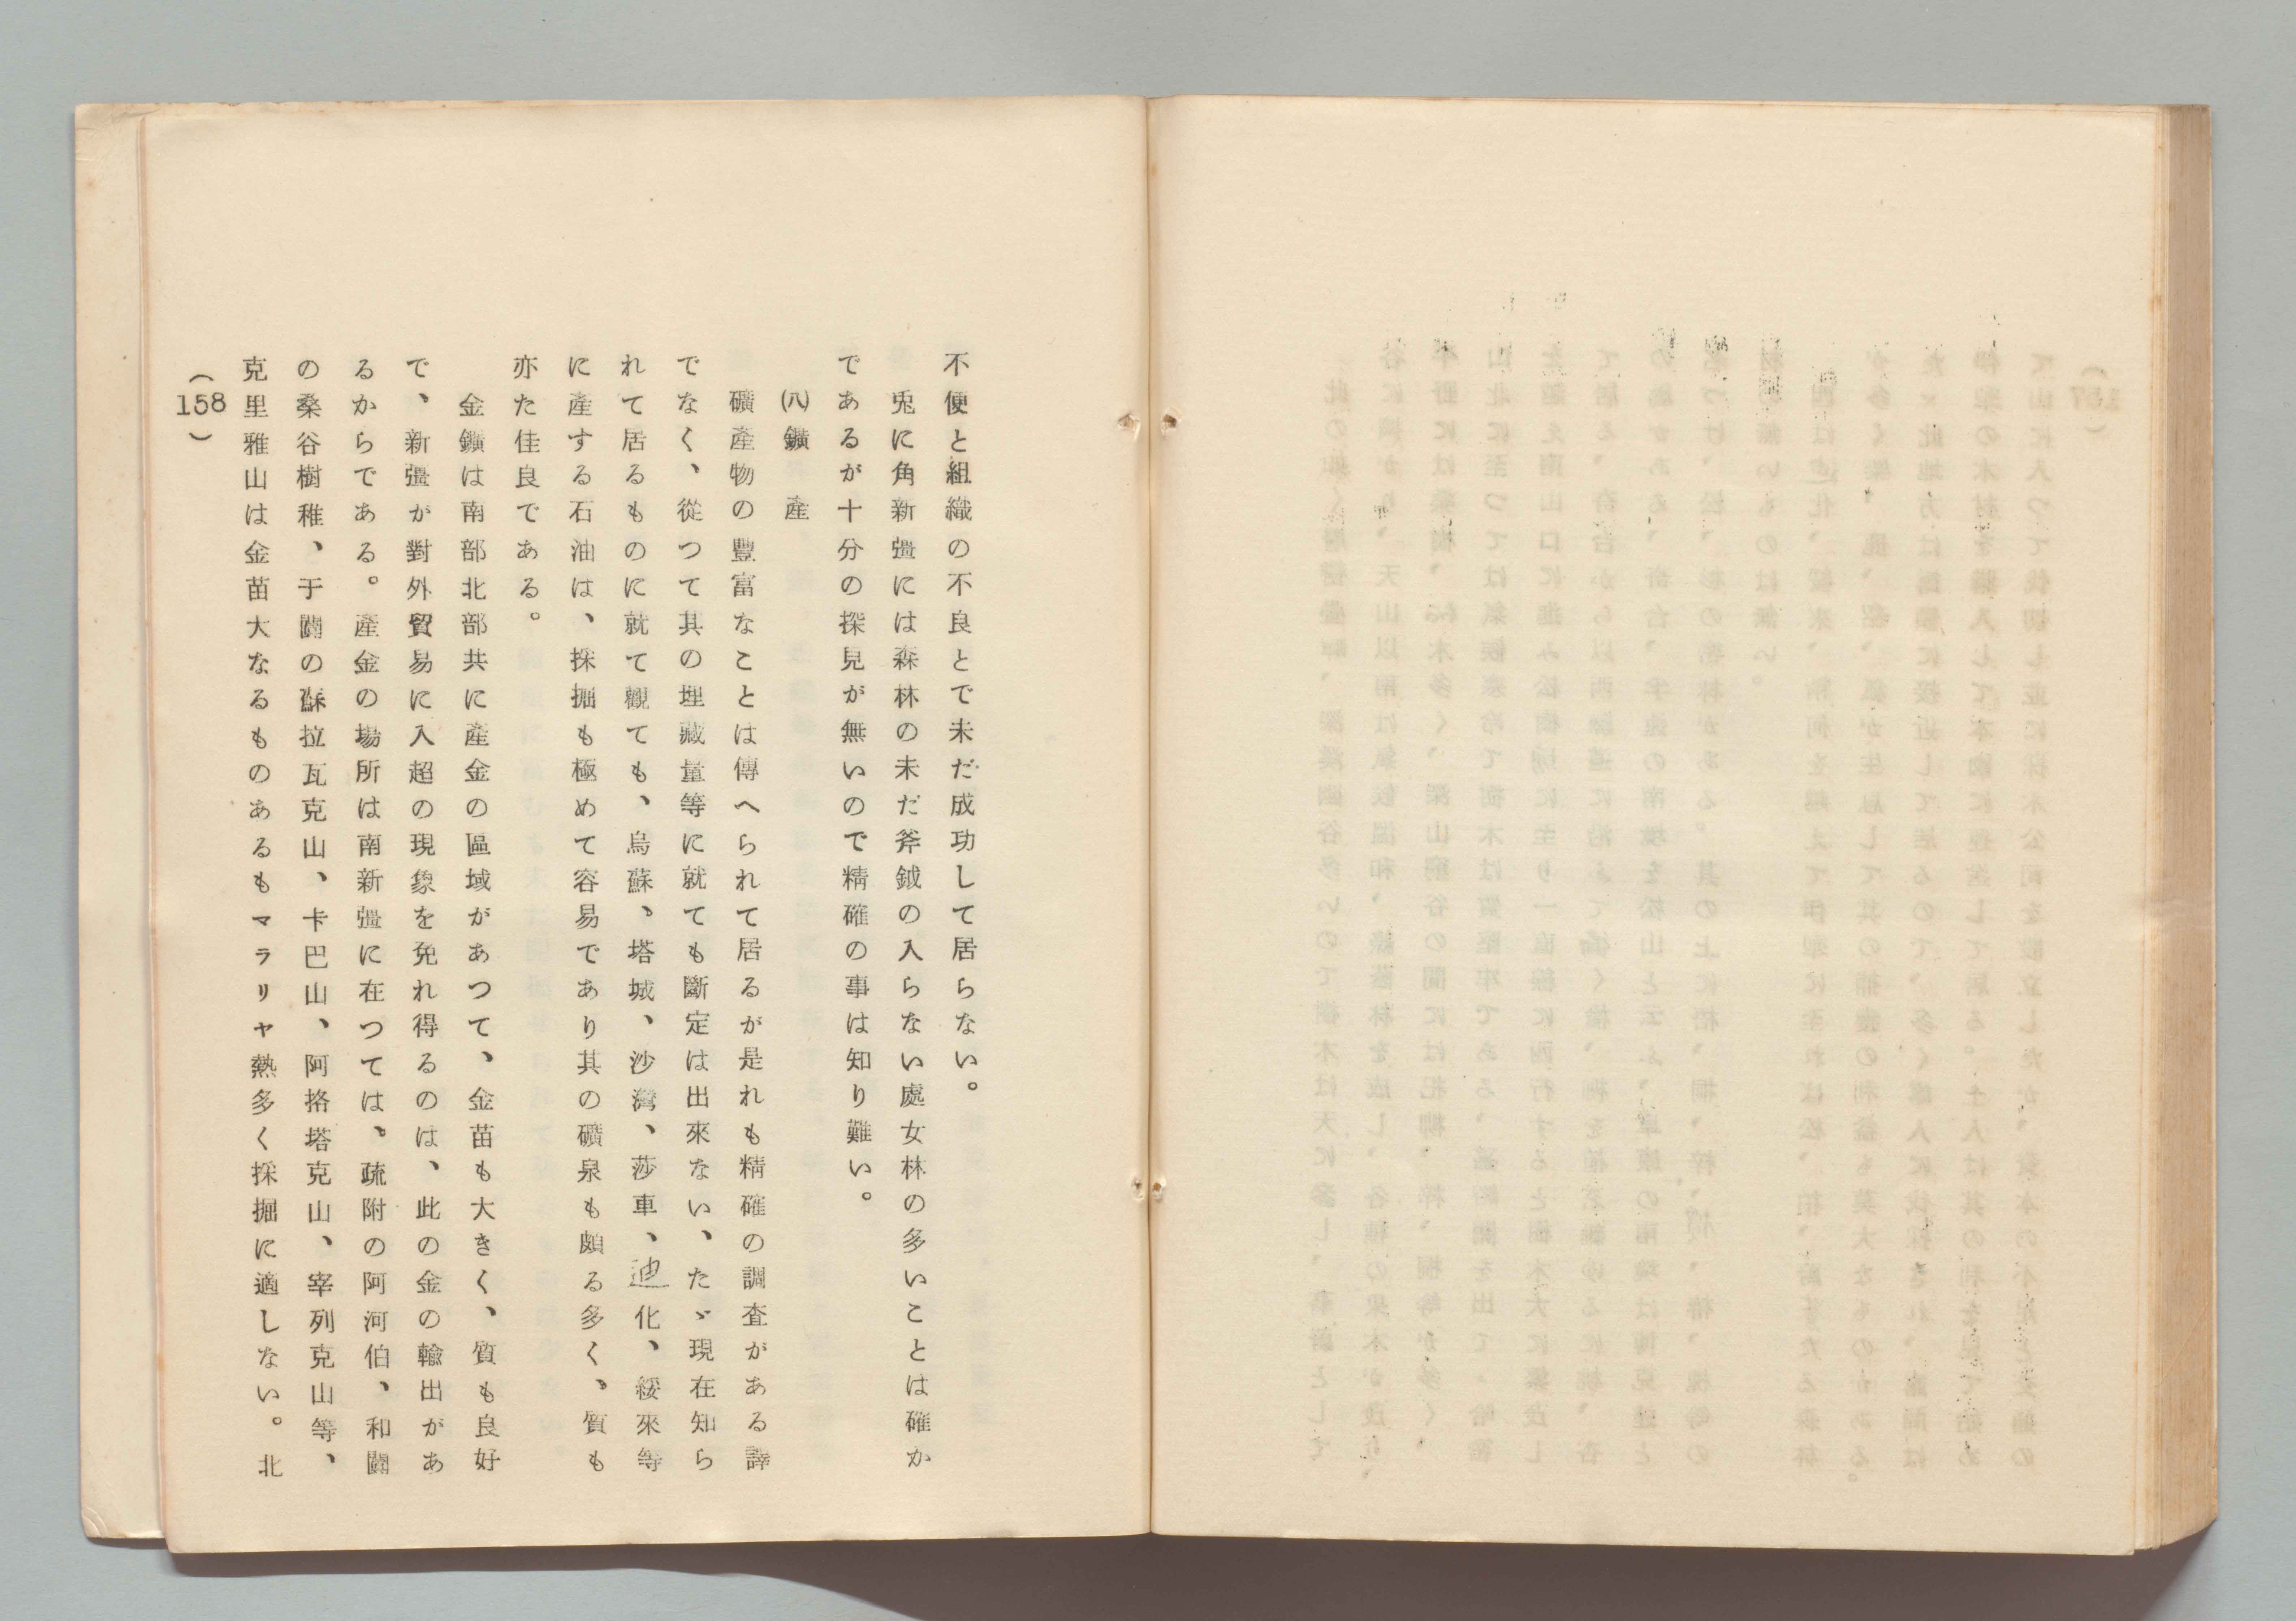 不便と組織の不良とで未だ成功して居らない。
兎に角新彊には森林の未だ斧鉞の入らない處女林の多いことは確か
であるが十分の探見が無いので精確の事は知り難い。
㈧鑛產
礦產物の豐富なことは傳へられて居るが是れも精確の調査がある譯
でなく、從つて其の埋藏量等に就ても斷定は出來ない、たゞ現在知ら
れて居るものに就て觀ても、烏蘇、塔城、沙灣、莎車、迪化、綏來等
に產する石油は、採掘も極めて容易であり其の礦泉も頗る多く、質も
亦た佳良である。
金鑛は南部北部共に產金の區域があつて、金苗も大きく、質も良好
で、新彊が對外貿易に入超の現象を免れ得るのは、此の金の輸出があ
るからである。產金の場所は南新彊に在つては、疏附の阿河伯、和闐
の桑谷樹稚、于闐の蘇拉瓦克山、卡巴山、阿挌塔克山、宰列克山等、
克里雅山は金苗大なるものあるもマラリヤ熱多く採掘に適しない。北
(158)